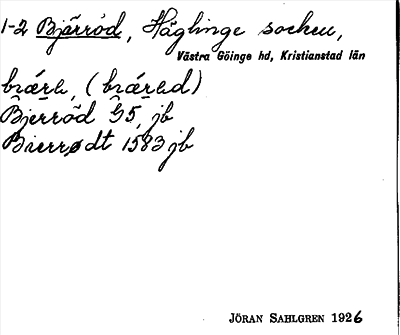 1-2 Bjärröd, Häglinge socken,
Västra Göinge hd, Kristianstad län
Bjerröd G5 jb
Bierrødt 1583 jb
JÖRAN SAHLGREN 1926